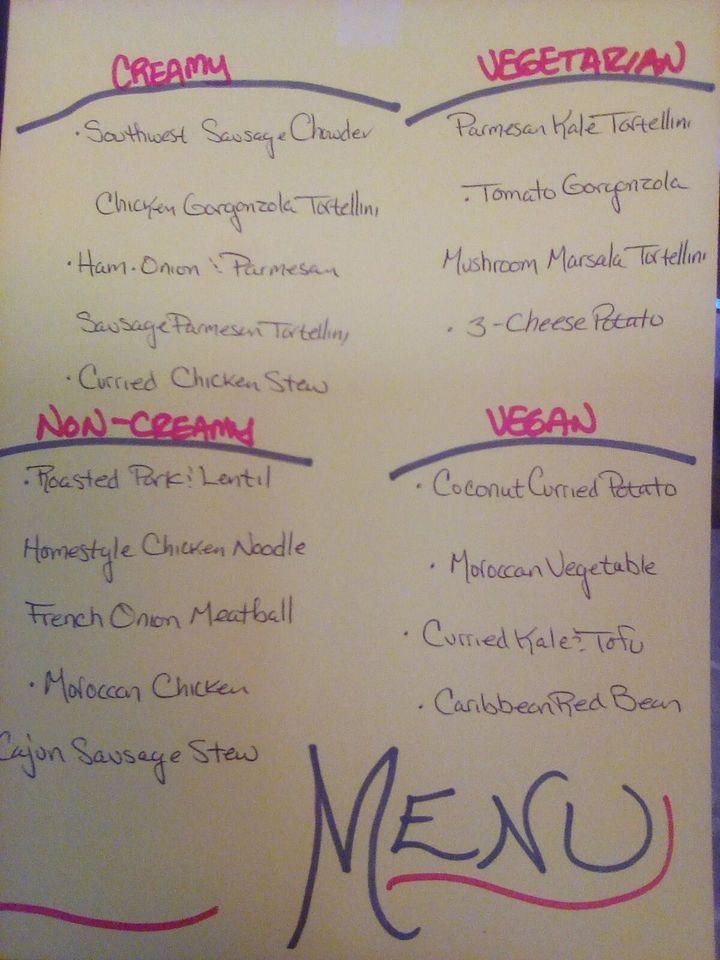 CREAMY
· Southwest Sausage Chowder
Chicken Gorgonzola Tortellini
· Ham. Onion & Parmesan
Sausage Parmesan Tortellini
· Curried Chicken Stew
VEGETARIAN
Parmesan Kale Tortellini
· Tomato Gorgonzola
Mushroom Marsala Tortellini
· 3-Cheese Potato
NON-CREAMY
· Roasted Pork & Lentil
Homestyle Chicken Noodle
French Onion Meatball
· Moroccan Chicken
Cajun Sausage Stew
VEGAN
· Coconut Curried Potato
· Moroccan Vegetable
· Curried Kale & Tofu
· Caribbean Red Bean
MENU